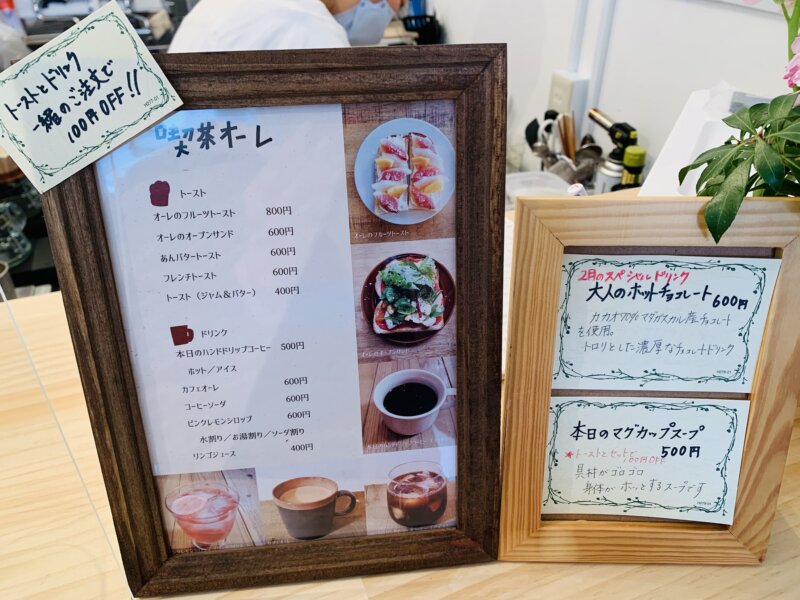 トーストとドリンク
一緒のご注文で
100円OFF!!
喫茶オーレ
トースト
オーレのフルーツトースト 800円
オーレのオープンサンド 600円
あんバタートースト 600円
フレンチトースト 600円
トースト（ジャム＆バター） 400円
ドリンク
本日のハンドドリップコーヒー 500円
ホット／アイス
カフェオーレ 600円
コーヒーソーダ 600円
ピンクレモンシロップ 600円
水割り／お湯割り／ソーダ割り
リンゴジュース 400円
オーレのフルーツトースト
オーレのオープンサンド
本日のハンドドリップコーヒー
2月のスペシャルドリンク
大人のホットチョコレート 600円
カカオ70%マダガスカル産チョコレート
を使用。
トロリとした濃厚なチョコレートドリンク
本日のマグカップスープ
500円
★トーストとセットで
100円OFF
具材がゴロゴロ
身体がホッとするスープです